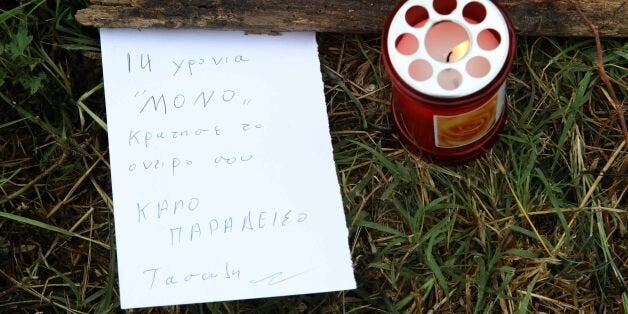 14 χρονια
"ΜΟΝΟ"
κρατησε το
ονειρο σου
ΚΑΛΟ
ΠΑΡΑΔΕΙΣΟ